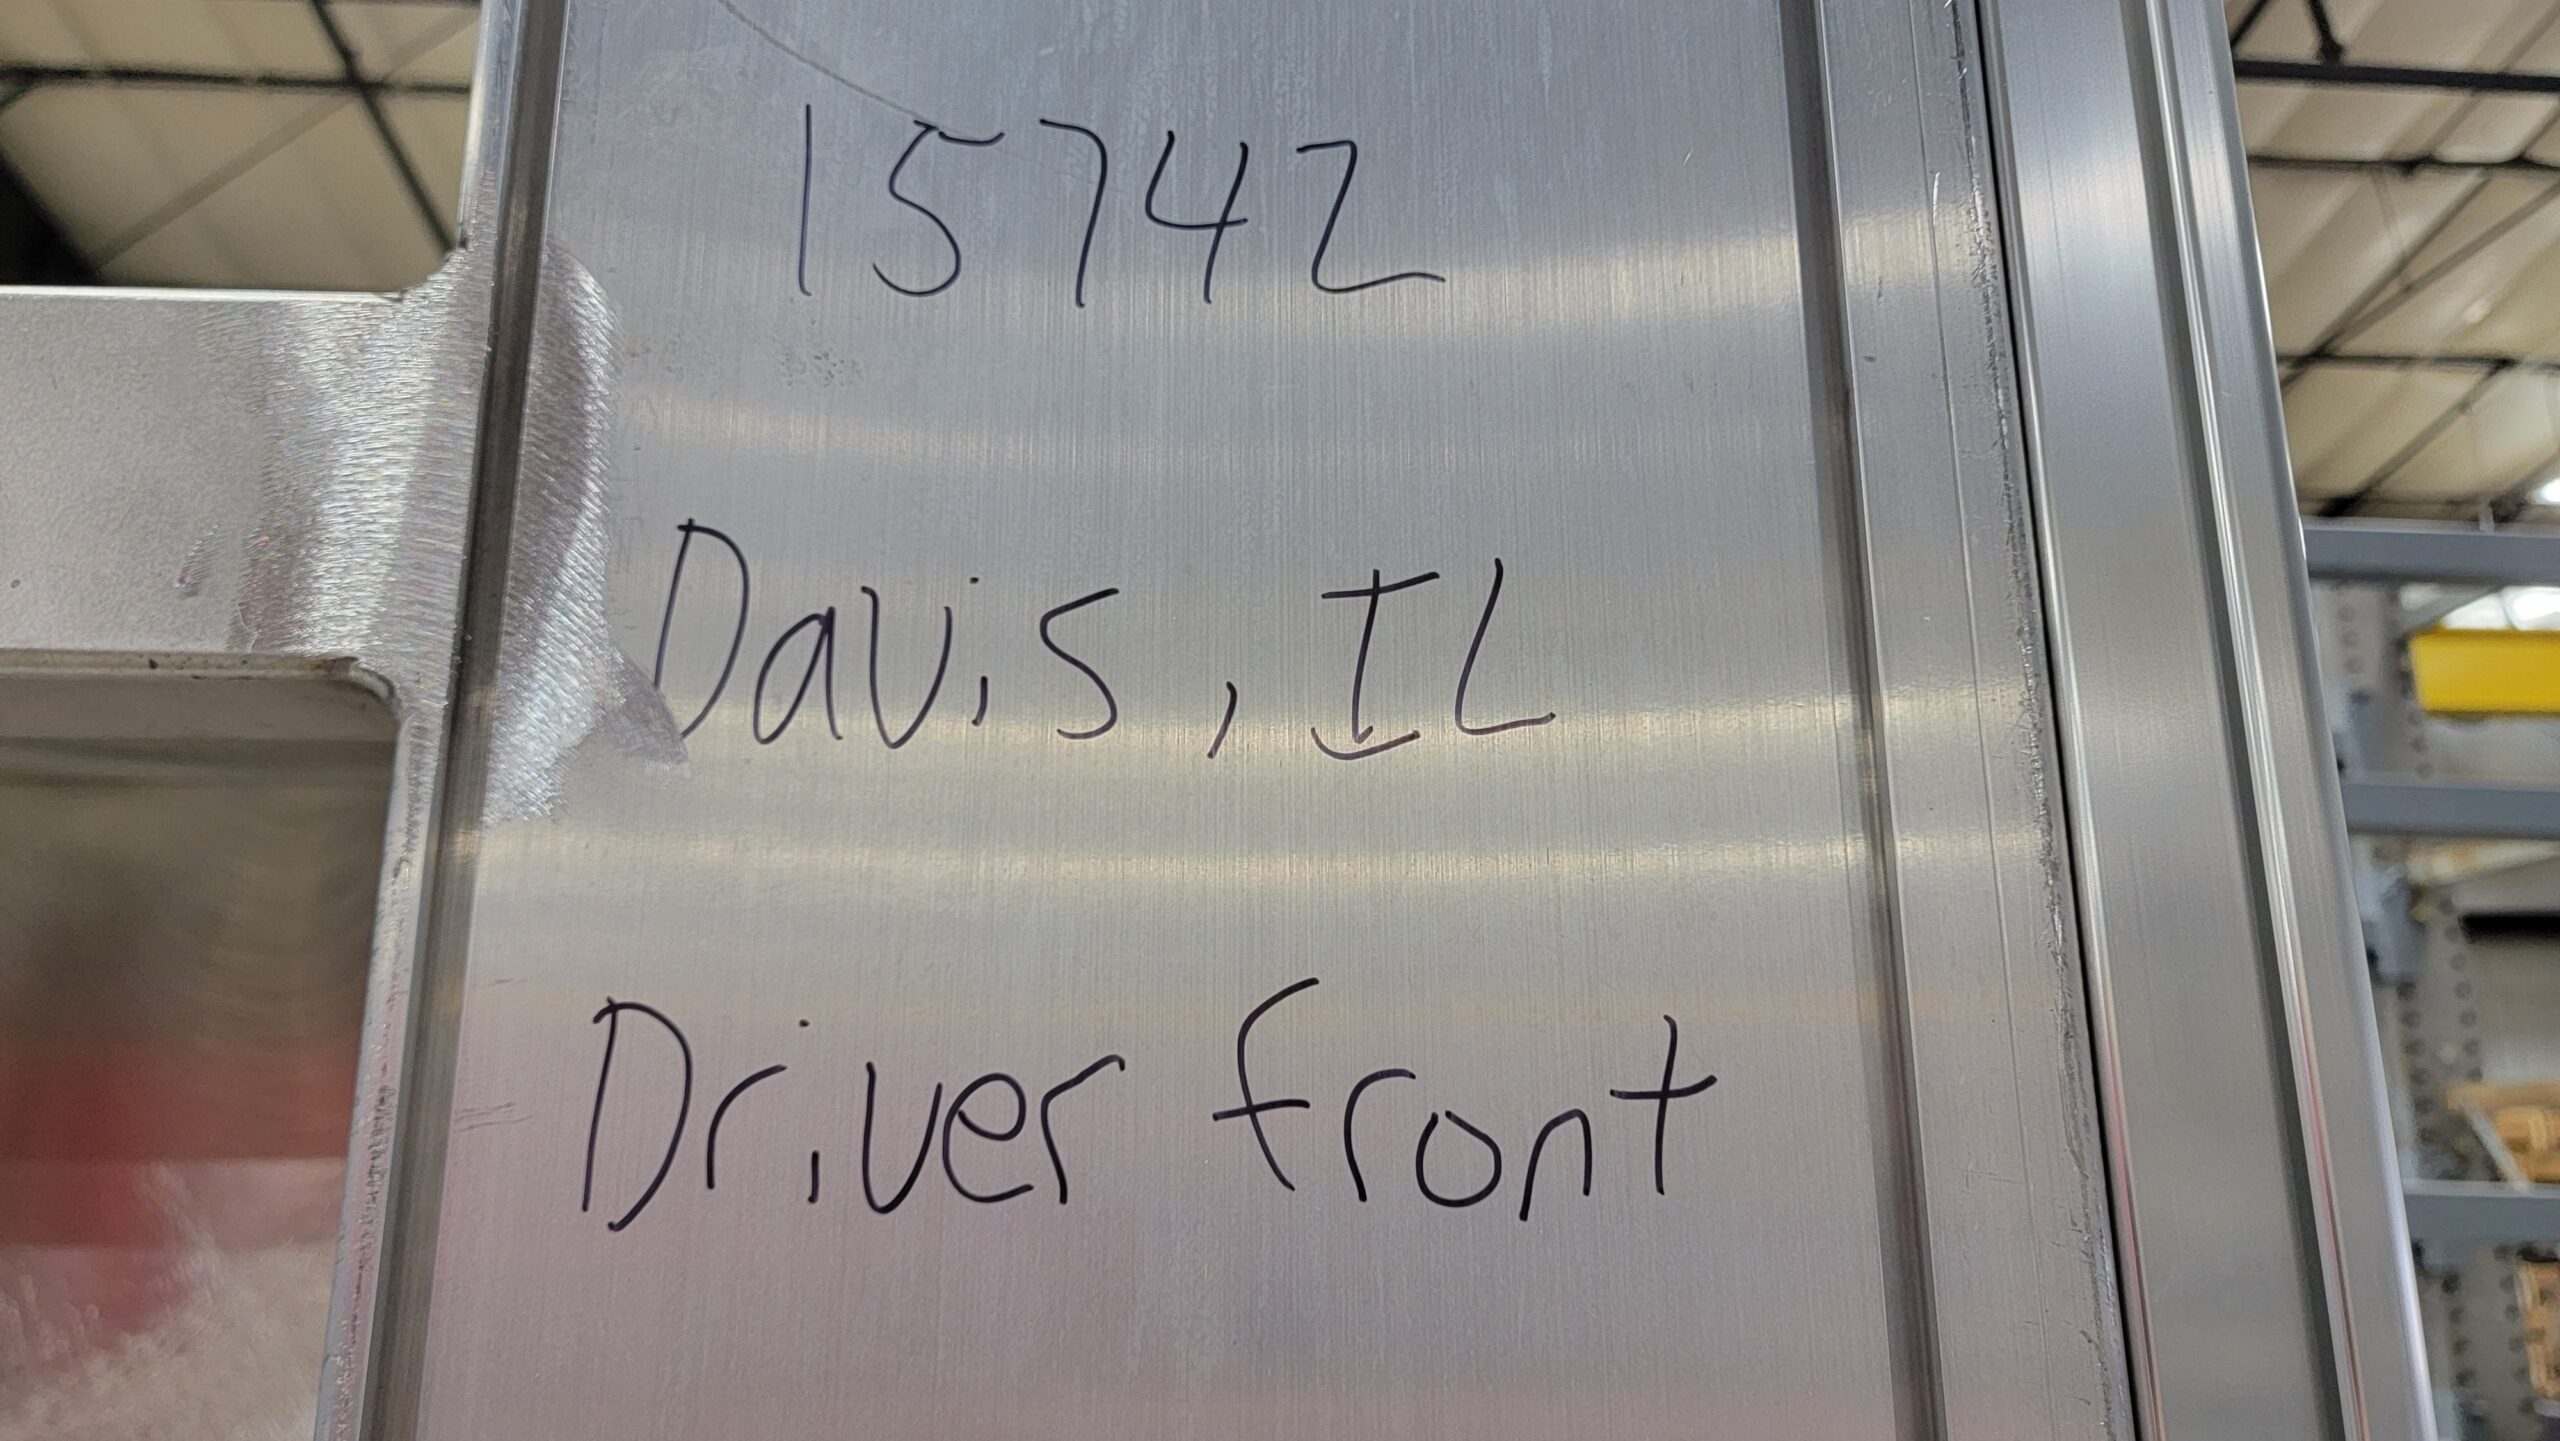 15742
Davis, IL
Driver front